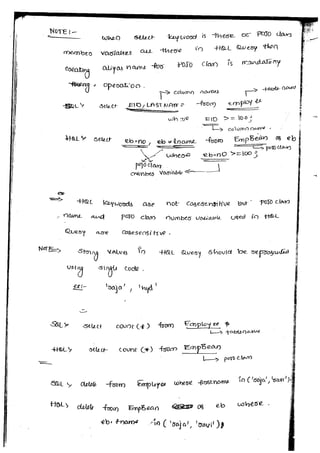 NOTE :-
when select keyword is there or POJO class
member variables are there in HQL Query then
creating alias name for POJO class is mandatory
operation.
column names
table name
SQL> select EID, LASTNAME from employee
where EID >= 100;
column name.
HQL> select eb.no, eb.fname from EmpBean as eb
pojo class
where eb.no >= 100;
pojo class
member variable
HQL keywords are not casesensitive but POJO class
name and pojo class member variable used in HQL
Query are casesensitive.
Note:- string values in HQL Query should be represented
using single code.
ex:- 'raja', 'hyd'
SQL> select count(*) from Employee
tablename
HQL> select count(*) from EmpBean
pojo class
SQL> delete from Employee where firstname in ('raja', 'ravi')
HQL> delete from EmpBean as eb where
eb.fname in ('raja', 'ravi')